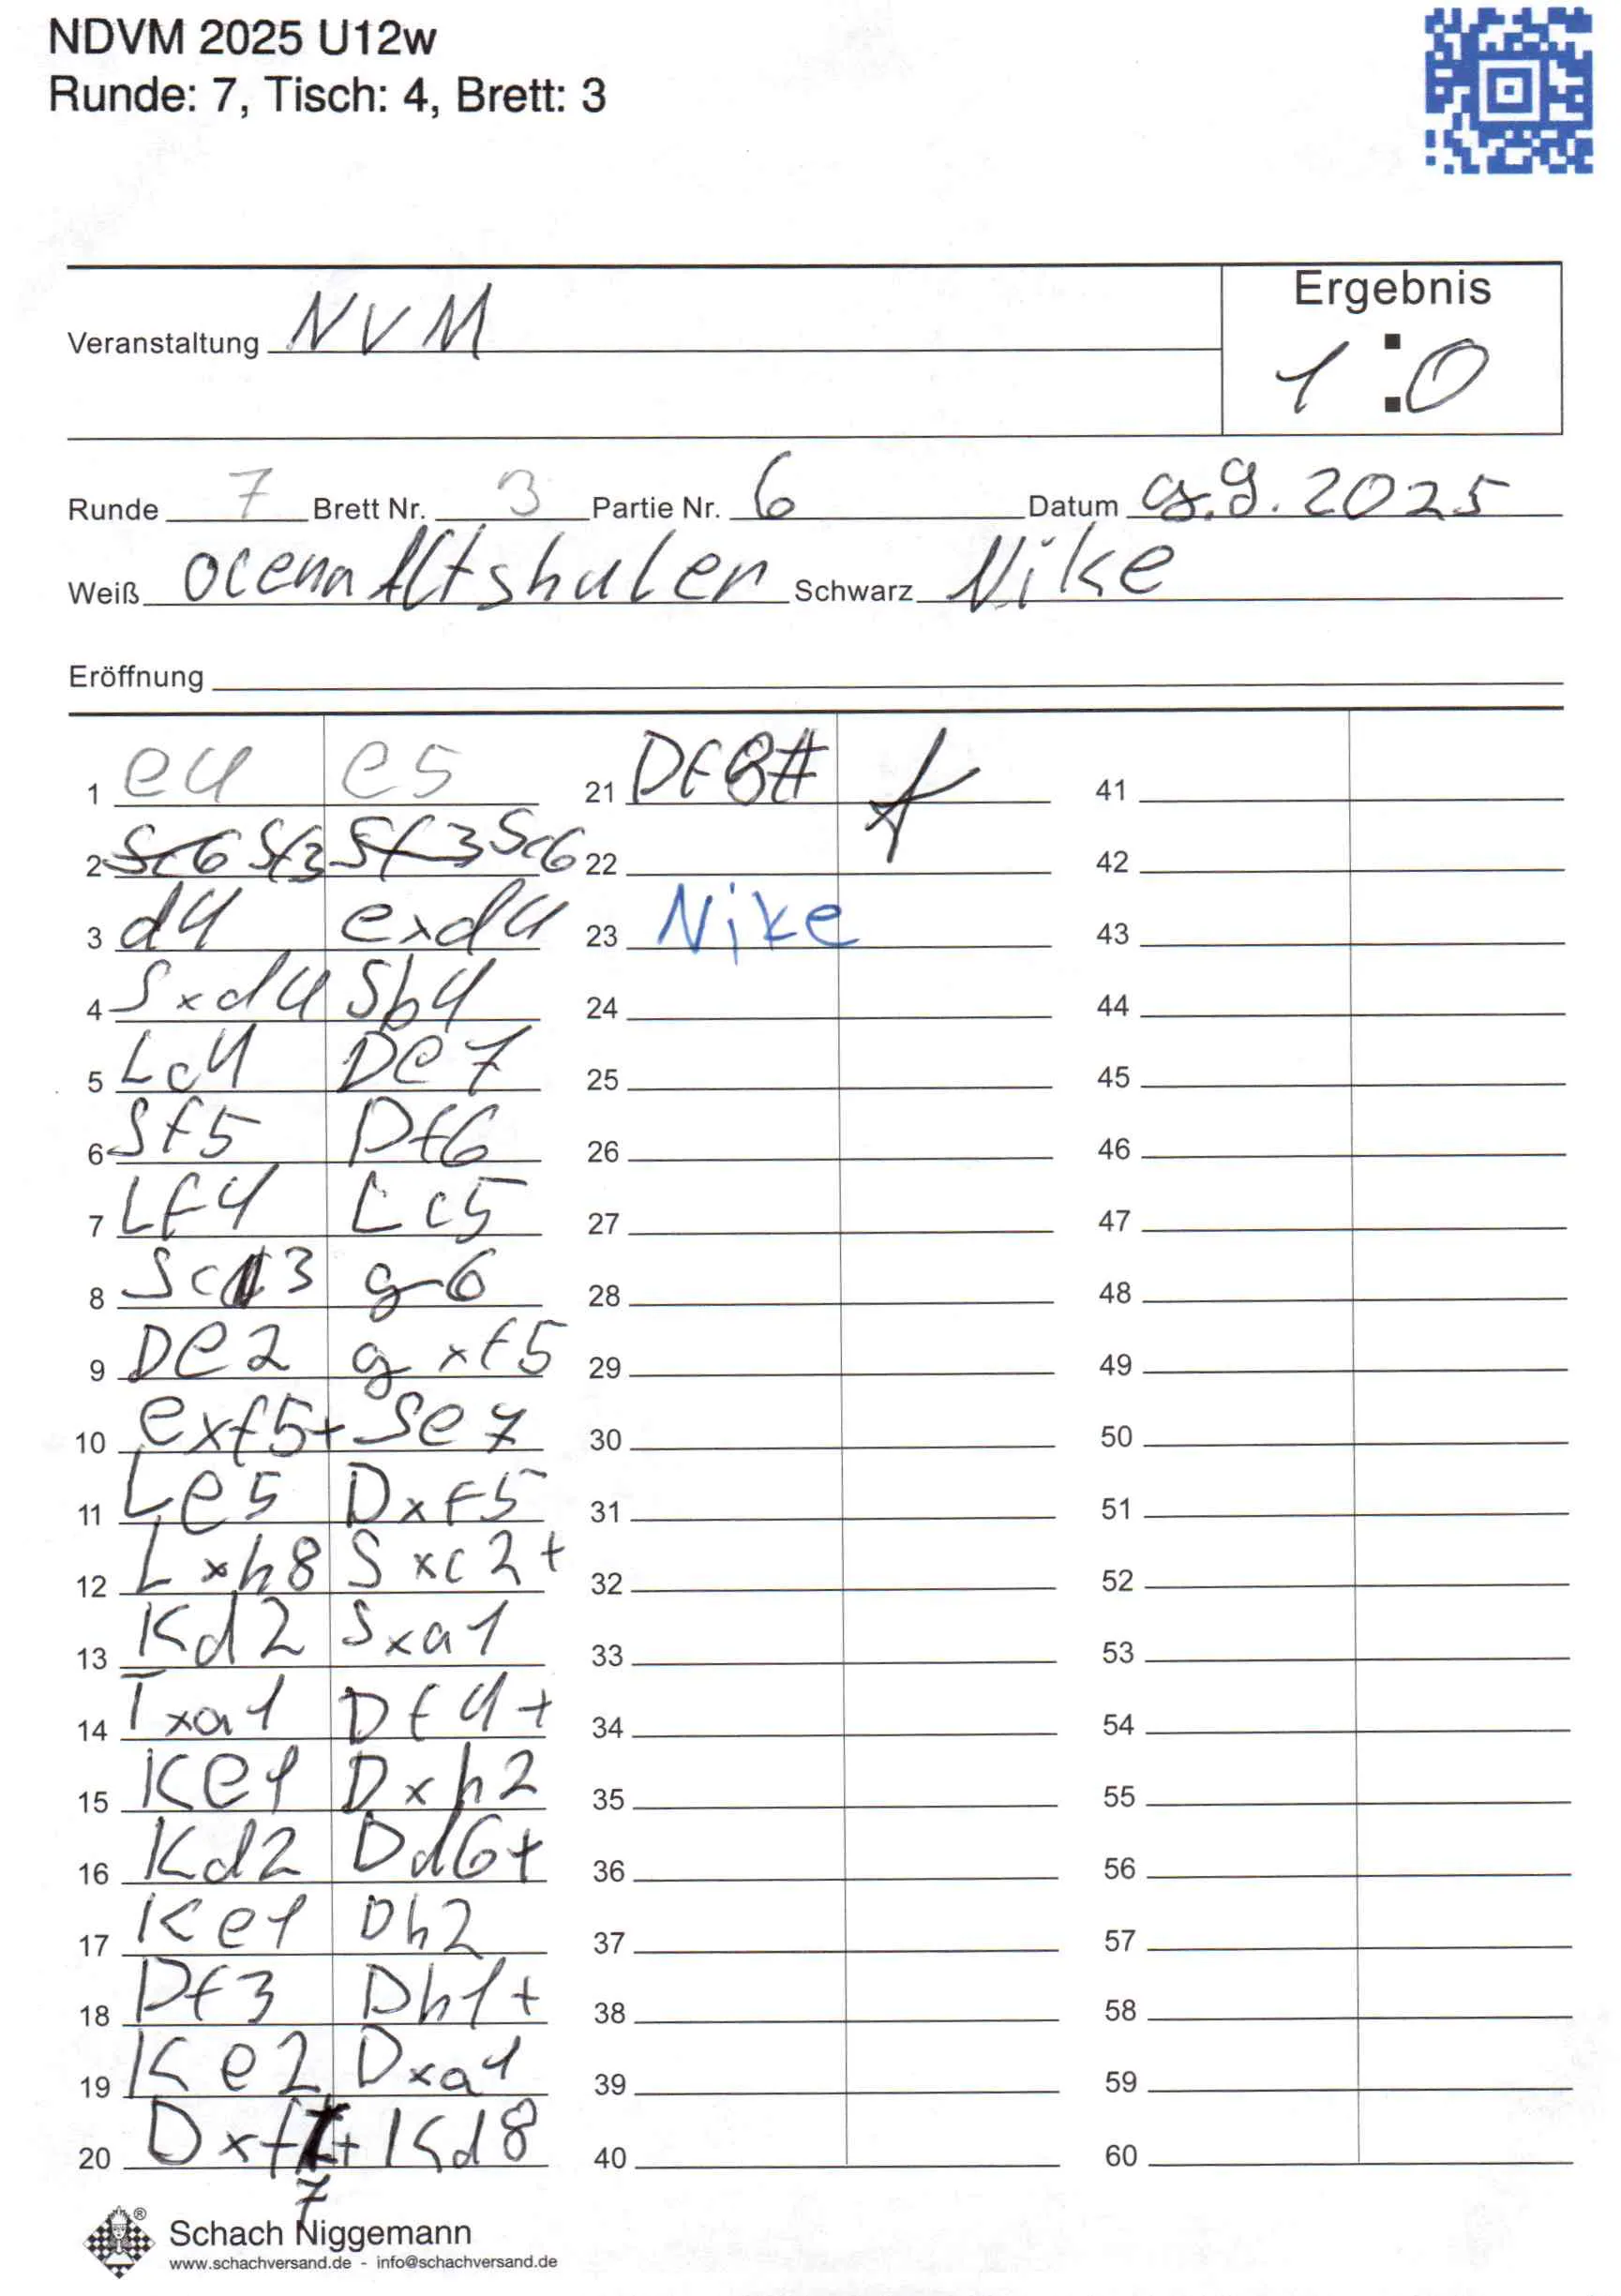 NDVM 2025 U12w
Runde: 7, Tisch: 4, Brett: 3
Ergebnis
Veranstaltung NVM
1:0
Runde 7 Brett Nr. 3 Partie Nr. 6 Datum 9.9.2025
Weiß Altshuler Schwarz Nike
Eröffnung
1 e4 e5 21 Df8# 41
2 Sc6 Sf3 Sf3 Sc6 22 42
3 d4 exd4 23 Nike 43
4 Sxd4 Sb4 24 44
5 Lc4 De7 25 45
6 Sf5 Df6 26 46
7 Lf4 Lc5 27 47
8 Sc3 g6 28 48
9 De2 gxf5 29 49
10 exf5+ Se7 30 50
11 Le5 Dxf5 31 51
12 Lxh8 Sxc2+ 32 52
13 Kd2 Sxa1 33 53
14 Txa1 Df4+ 34 54
15 Ke1 Dxh2 35 55
16 Kd2 Dd6+ 36 56
17 Ke1 Dh2 37 57
18 Df3 Dh1+ 38 58
19 Ke2 Dxa1 39 59
20 Dxf7+ Kd8 40 60
7
Schach Niggemann
www.schachversand.de - info@schachversand.de